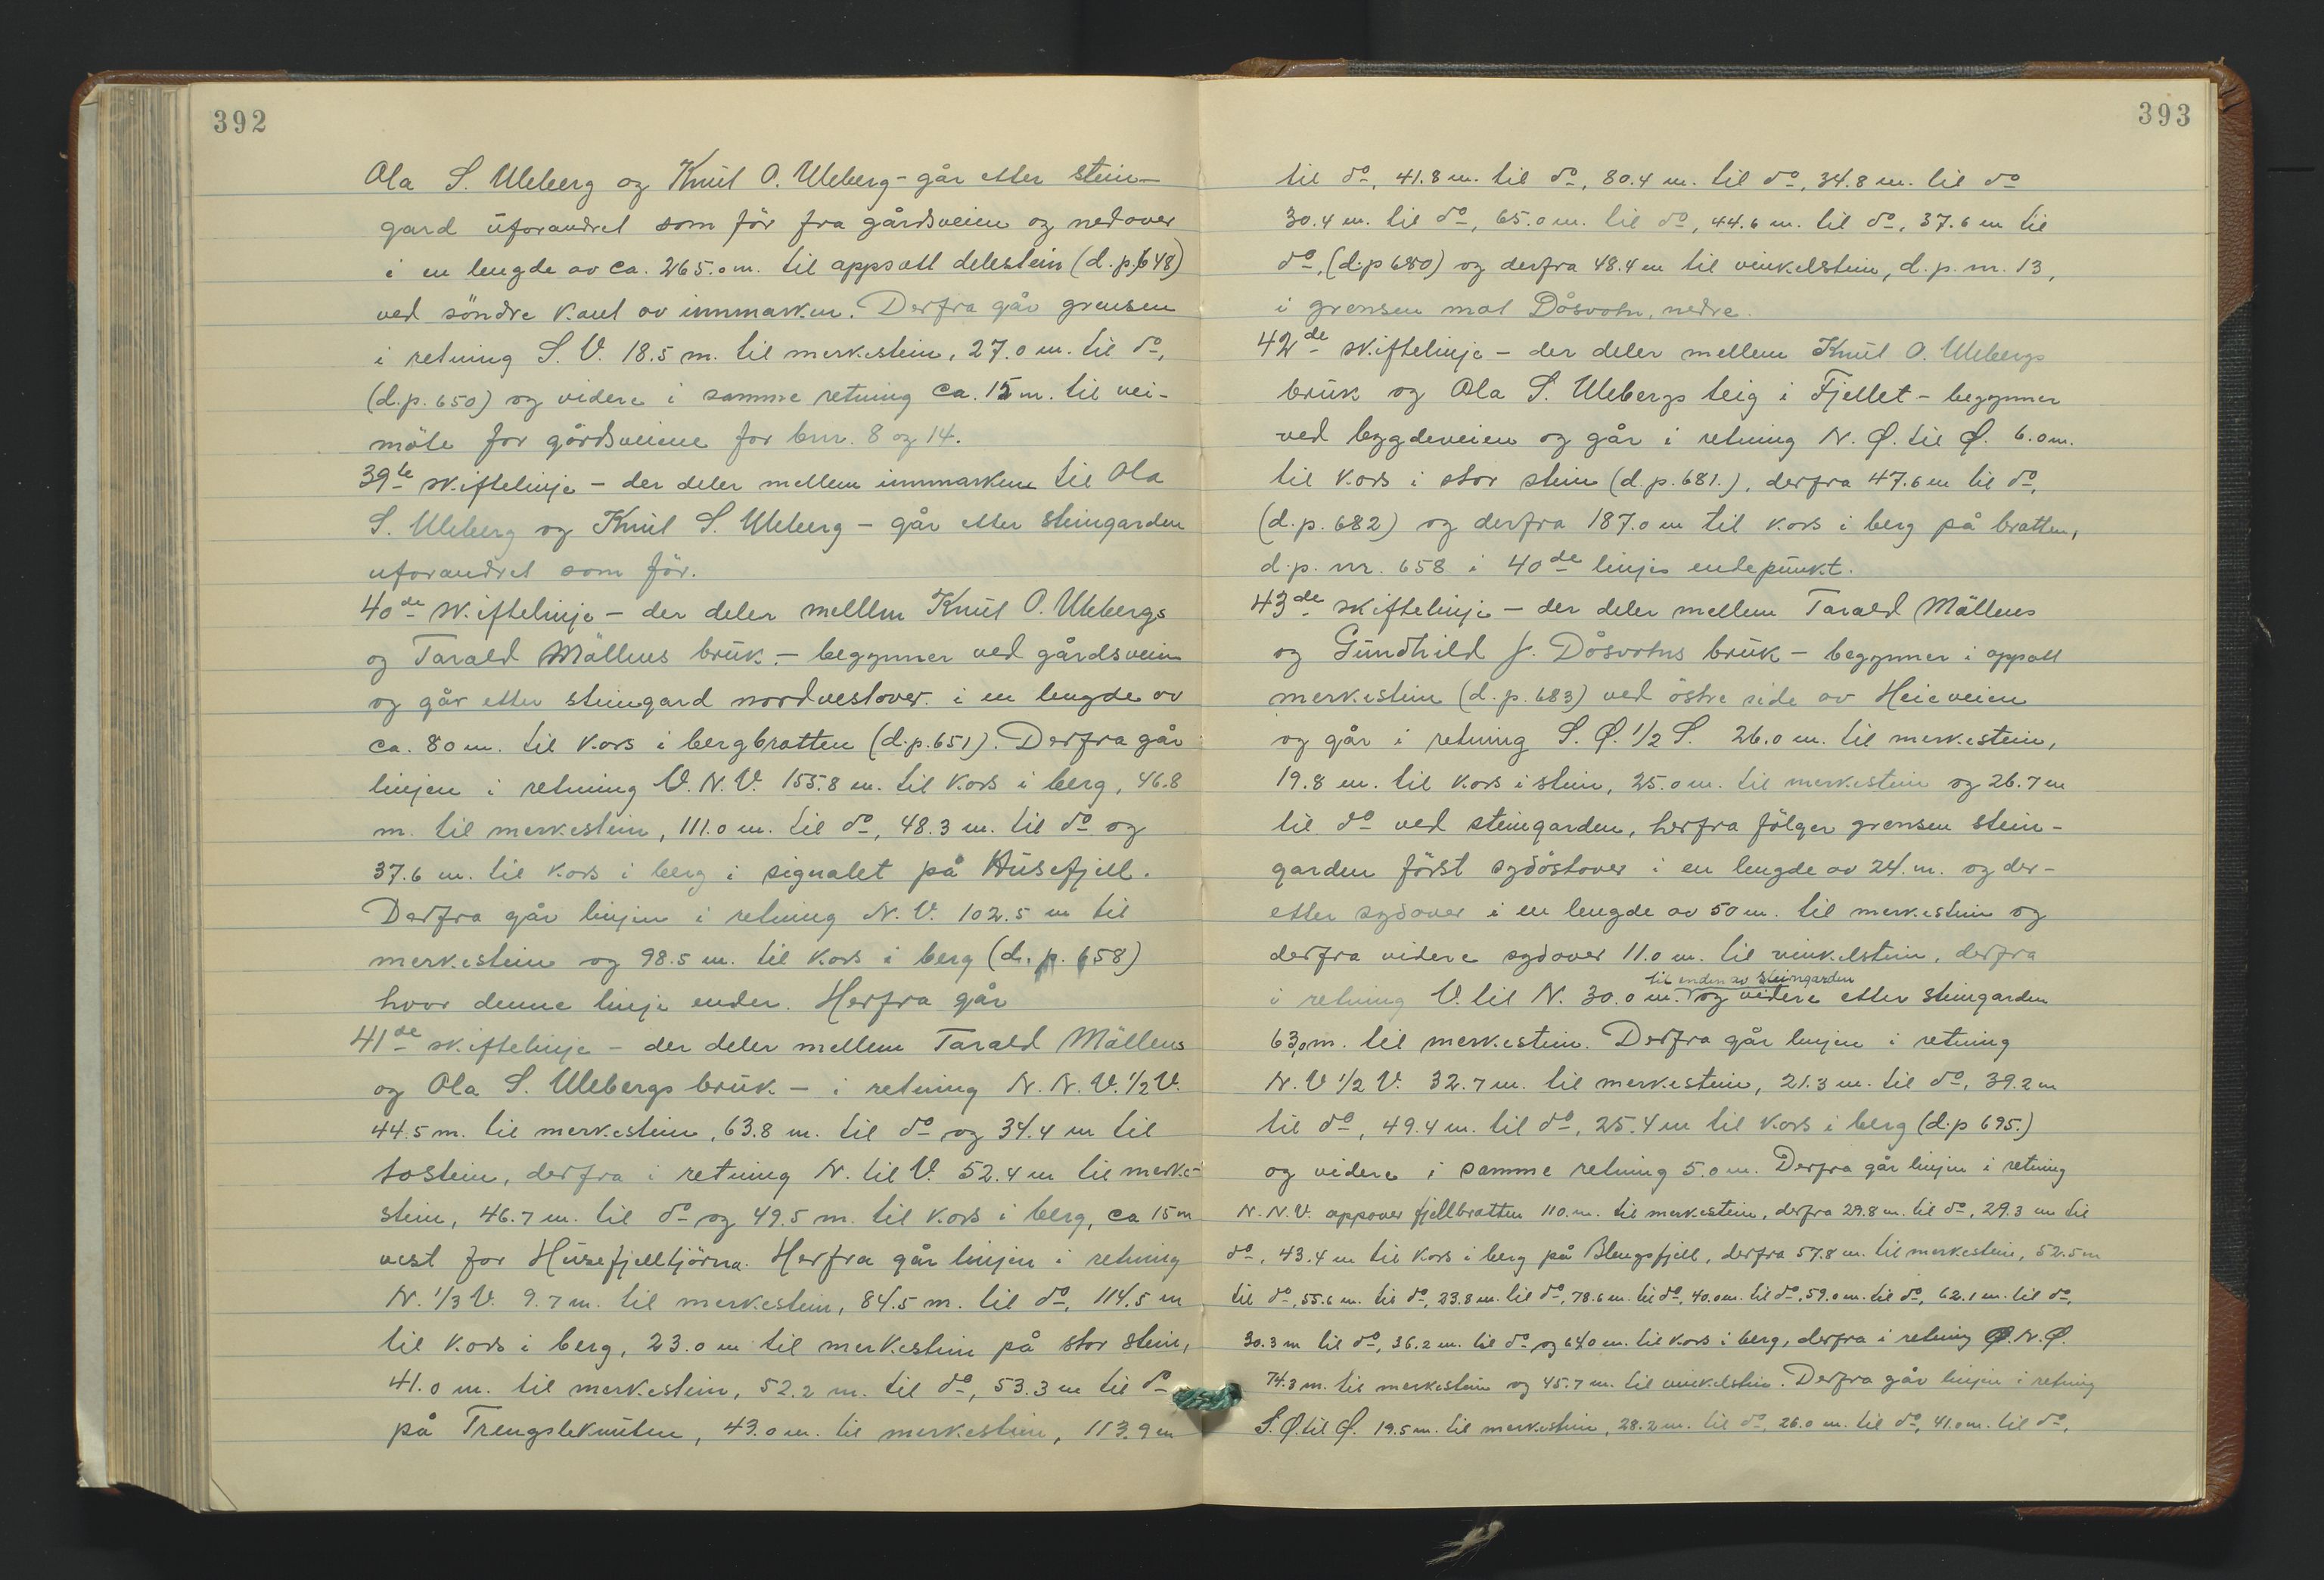 392
Ola S. Uleberg og Knut O. Uleberg - går etter stein-
gard uforandret som för fra gårdsveien og nedover
i en lengde av ca. 265.0 m. til oppsatt delestein (d.p. 648)
ved söndre kant av innmarken. Derfra går grensen
i retning S.V. 18.5 m. til merkestein, 27.0 m. til do,
(d.p. 650) og videre i samme retning ca. 15 m. til vei-
möte for gårdsveiene for bnr. 8 og 14.
39te skiftelinje - der deler mellem innmarken til Ola
S. Uleberg og Knut S. Uleberg - går etter steingarden
uforandret som för.
40de skiftelinje - der deler mellem Knut O. Ulebergs
og Tarald Möllens bruk - begynner ved gårdsveien
og går etter steingard nordvestover i en lengde av
ca. 80 m. til kors i bergbratten (d.p. 651). Derfra går
linjen i retning V.N.V. 155.8 m. til kors i berg, 46.8
m. til merkestein, 111.0 m. til do, 48.3 m. til do og
37.6 m. til kors i berg i signalet på Husefjell.
Derfra går linjen i retning N.V. 102.5 m til
merkestein og 98.5 m. til kors i berg (d. p. 658)
hvor denne linje ender. Herfra går
41de skiftelinje - der deler mellem Tarald Möllens
og Ola S. Ulebergs bruk - i retning N.N.V. 1/2 V.
44.5 m. til merkestein, 63.8 m. til do og 34.4 m til
tostein, derfra i retning N. til V. 52.4 m til merke-
stein, 46.7 m. til do og 49.5 m. til kors i berg, ca 15 m
vest for Husefjelltjörna. Herfra går linjen i retning
N. 1/3 V. 9.7 m. til merkestein, 84.5 m. til do, 114.5 m
til kors i berg, 23.0 m til merkestein på stor stein,
41.0 m. til merkestein, 52.2 m. til do, 53.3 m til do
på Trengsleknuten, 43.0 m. til merkestein, 113.9 m
393
til do, 41.8 m. til do, 80.4 m. til do, 34.8 m. til do
30.4 m. til do, 65.0 m. til do, 44.6 m. til do, 37.6 m til
do, (d.p 680) og derfra 48.4 m til vinkelstein, d.p. nr. 13,
i grensen mot Dåsvatn, nedre.
42de skiftelinje - der deler mellem Knut O. Ulebergs
bruk og Ola S. Ulebergs teig i Fjellet - begynner
ved bygdeveien og går i retning N.Ø. til Ø. 6.0 m.
til kors i stor stein (d.p. 681.), derfra 47.6 m til do,
(d.p. 682) og derfra 187.0 m til kors i berg på bratten,
d.p. nr. 658 i 40de linjes endepunkt.
43de skiftelinje - der deler mellem Tarald Möllens
og Gundhild J. Dåsvatns bruk - begynner i oppsatt
merkestein (d.p. 683) ved östre side av Heieveien
og går i retning S.Ø. 1/2 S. 26.0 m. til merkestein,
19.8 m. til kors i stein, 25.0 m. til merkestein og 26.7 m
til do ved steingarden, herfra fölger grensen stein-
garden först sydöstover i en lengde av 24. m. og der-
etter sydover i en lengde av 50 m. til merkestein og
derfra videre sydover 11.0 m. til vinkelstein, derfra
til enden av steingarden
i retning V. til N. 30.0 m. og videre etter steingarden
63,0 m. til merkestein. Derfra går linjen i retning
N.V 1/2 V. 32.7 m. til merkestein, 21.3 m. til do, 39.2 m
til do, 49.4 m. til do, 25.4 m til kors i berg (d.p 695.)
og videre i samme retning 5.0 m. Derfra går linjen i retning
N.N.V. oppover fjellbratten 110. m. til merkestein, derfra 29.8 m. til do, 29.3 m til
do, 43.4 m til kors i berg på Blengsfjell, derfra 57.8 m. til merkestein, 52.5 m
til do, 55.6 m. til do, 23.8 m. til do, 78.6 m. til do, 40.0 m. til do, 59.0 m. til do, 62.1 m. til do,
30.3 m til do, 36.2 m. til do og 64.0 m. til kors i berg, derfra i retning Ø.N.Ø.
74.3 m. til merkestein og 45.7 m. til vinkelstein. Derfra går linjen i retning
S.Ø. til Ø. 19.5 m. til merkestein, 28.2 m. til do, 26.0 m. til do, 41.0 m. til do,